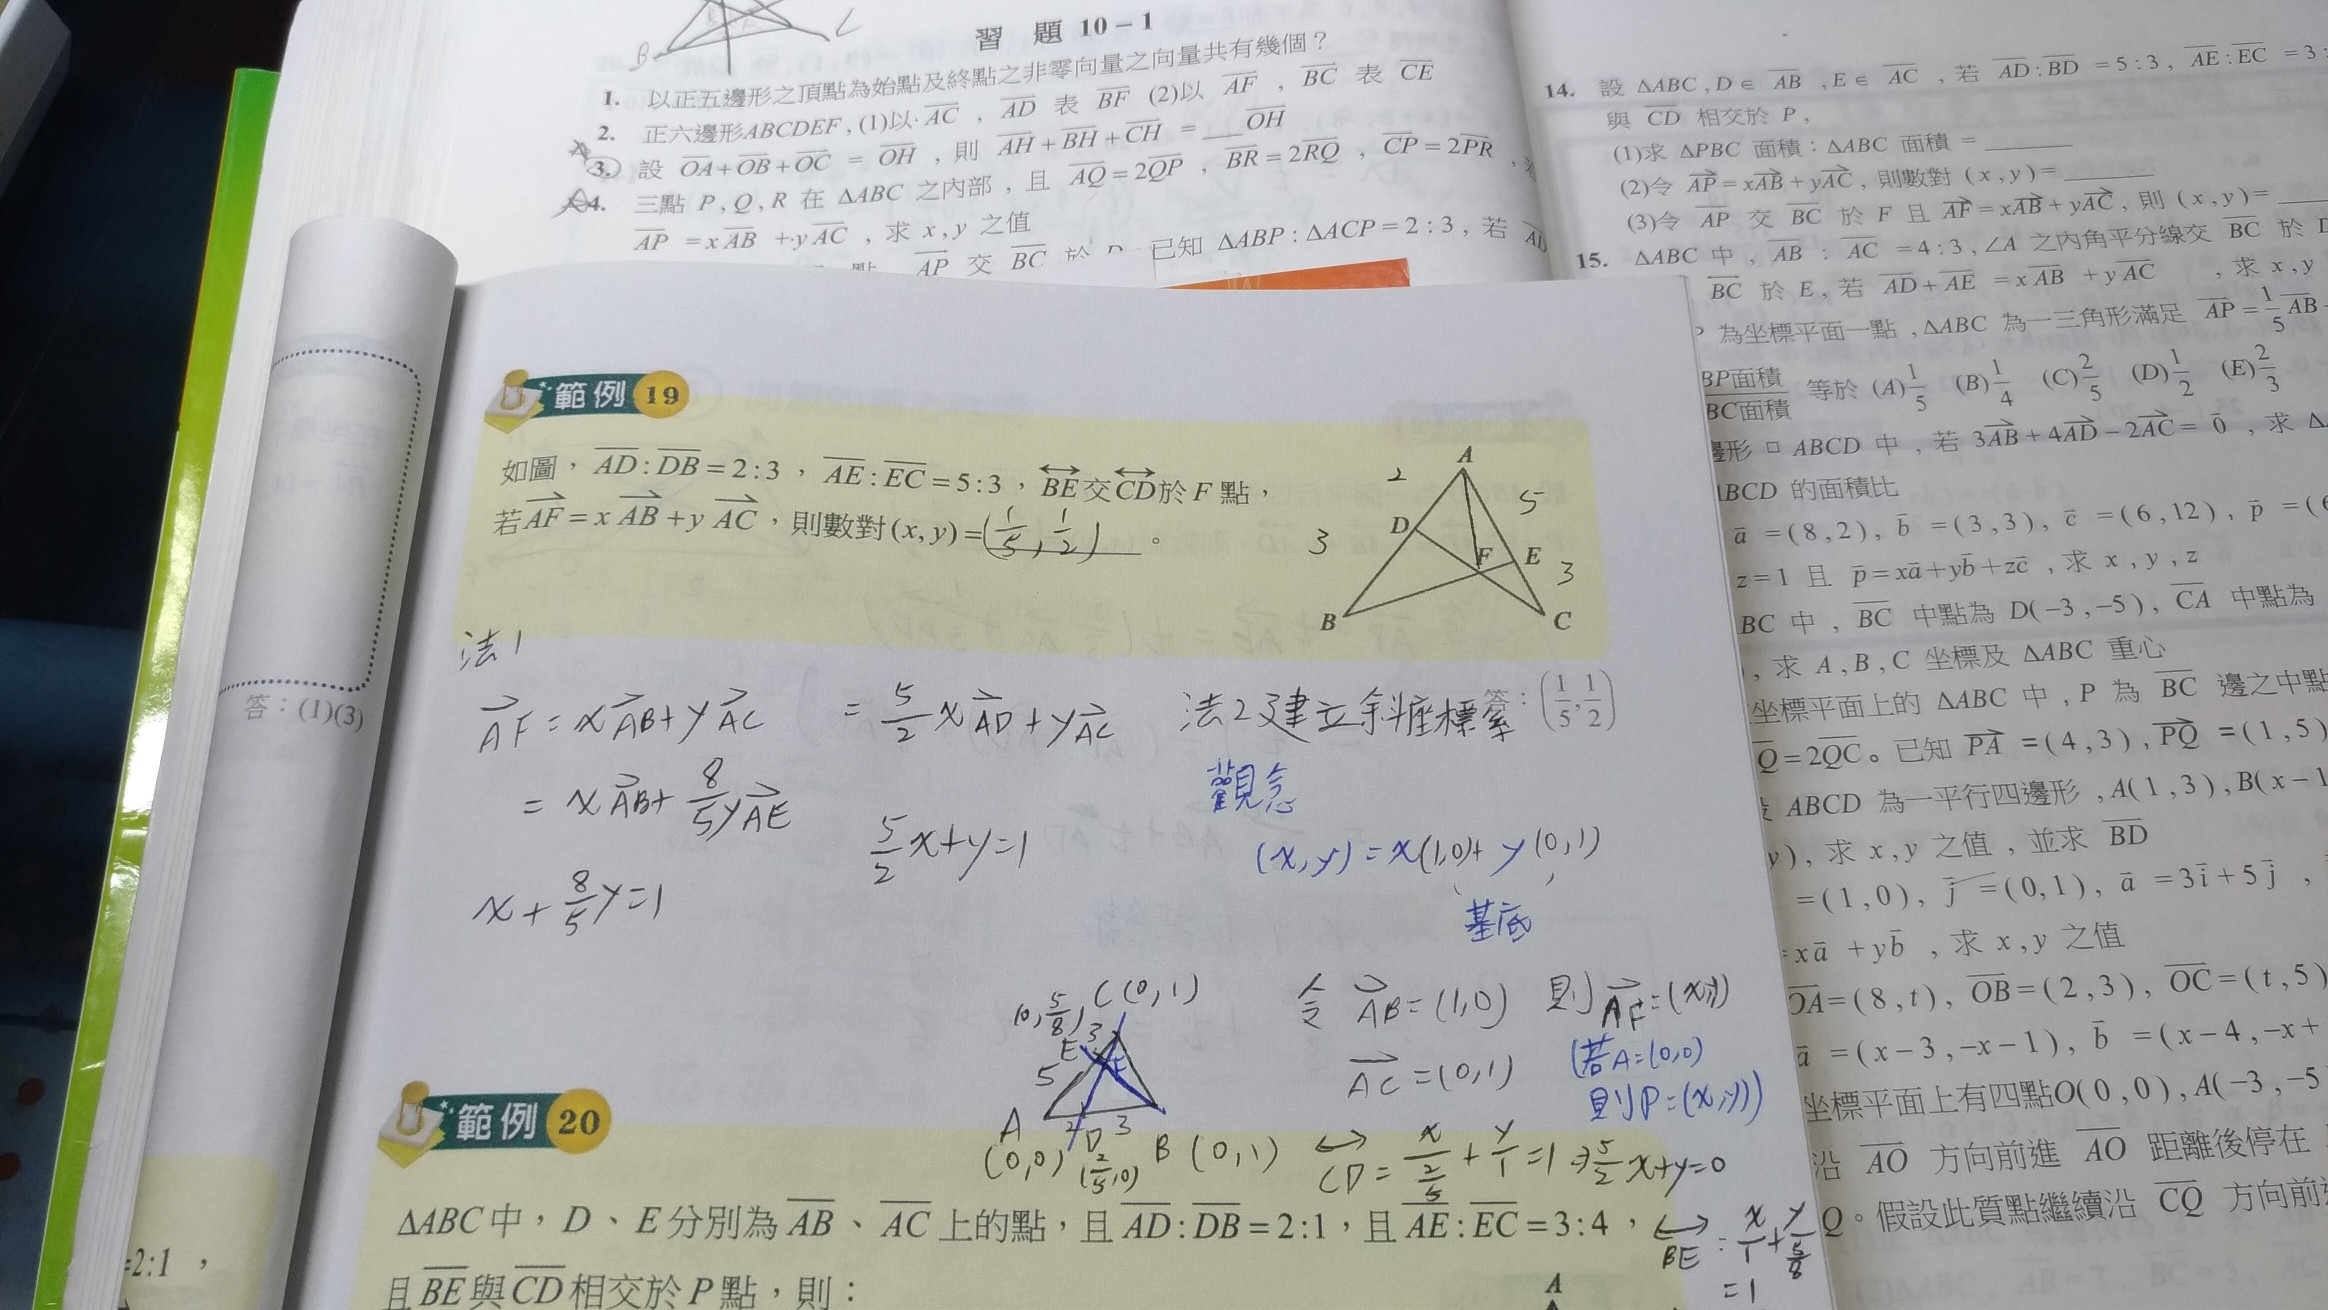 習 題 10－1
1. 以正五邊形之頂點為始點及終點之非零向量之向量共有幾個？
2. 正六邊形ABCDEF, (1)以 AC , AD 表 BF (2)以 AF , BC 表 CE
3. 設 OA+OB+OC = OH , 則 AH+BH+CH = ___OH
4. 三點 P, Q, R 在 ΔABC 之內部 , 且 AQ=2QP , BR=2RQ , CP=2PR ,
AP =xAB +yAC , 求 x,y 之值
AP 交 BC 於 D 已知 ΔABP:ΔACP=2:3 , 若
B C
14. 設 ΔABC , D∈ AB , E∈ AC , 若 AD:BD =5:3, AE:EC =3:
與 CD 相交於 P ,
(1)求 ΔPBC 面積：ΔABC 面積 = ____
(2)令 AP=xAB+yAC , 則數對 (x,y)= ____
(3)令 AP 交 BC 於 F 且 AF=xAB+yAC, 則 (x,y)= ____
15. ΔABC 中 , AB : AC =4:3, ∠A 之內角平分線交 BC 於
BC 於 E, 若 AD+AE =xAB +yAC , 求 x,y
為坐標平面一點 , ΔABC 為一三角形滿足 AP=1/5 AB
BP面積/BC面積 等於 (A)1/5 (B)1/4 (C)2/5 (D)1/2 (E)2/3
邊形 □ ABCD 中 , 若 3AB+4AD−2AC= 0 , 求
BCD 的面積比
a =(8,2), b =(3,3), c =(6,12), p =(
z=1 且 p=xa+yb+zc , 求 x,y,z
BC 中 , BC 中點為 D(−3,−5), CA 中點為
, 求 A,B,C 坐標及 ΔABC 重心
坐標平面上的 ΔABC 中 , P 為 BC 邊之中點
Q=2QC。已知 PA =(4,3), PQ =(1,5)
ABCD 為一平行四邊形 , A(1,3), B(x−1
y), 求 x,y 之值 , 並求 BD
=(1,0), j =(0,1), a =3i+5j ,
=xa +yb , 求 x,y 之值
OA=(8,t), OB=(2,3), OC=(t,5)
a =(x−3,−x−1), b =(x−4,−x+
坐標平面上有四點O(0,0), A(−3,−5
沿 AO 方向前進 AO 距離後停在
Q。假設此質點繼續沿 CQ 方向前
範例 19
如圖，AD:DB=2:3，AE:EC=5:3，BE交CD於F點，
若AF=xAB+yAC，則數對(x,y)=(1/5, 1/2)。
A
2 5
D
3 F E
3
B C
法1
答：(1)(3)
AF=xAB+yAC = 5/2 xAD+yAC
答：(1/5, 1/2)
法2 建立斜座標系
= xAB+ 8/5 yAE
觀念
5/2 x+y=1
(x,y)=x(1,0)+y(0,1)
x+ 8/5 y=1
基底
(0, 5/8) C(0,1)
令 AB=(1,0) 則AF=(x,y)
E 3 F
5
AC=(0,1)
(若A=(0,0)
則P=(x,y))
A 2 D 3 B (0,1)
(0,0) (2/5,0)
CD= x/(2/5) + y/1 =1 ⇒ 5/2 x+y=0
BE: x/1 + y/(5/8)
=1
範例 20
ΔABC中，D、E分別為AB、AC上的點，且AD:DB=2:1，且AE:EC=3:4，
且BE與CD相交於P點，則：
A
=2:1，